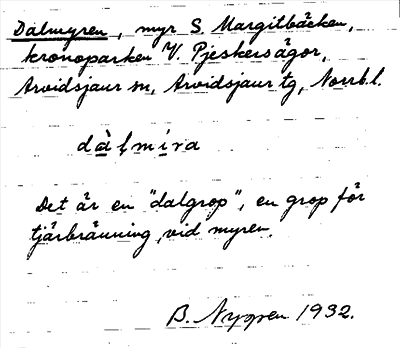 Dalmyren, myr S. Margitbäcken,
kronoparken V. Pjeskersågor,
Arvidsjaur sn, Arvidsjaur tg, Norrb. l.
dàlmíra
Det är en "dalgrop", en grop för
tjärbränning, vid myren.
B. Nygren 1932.